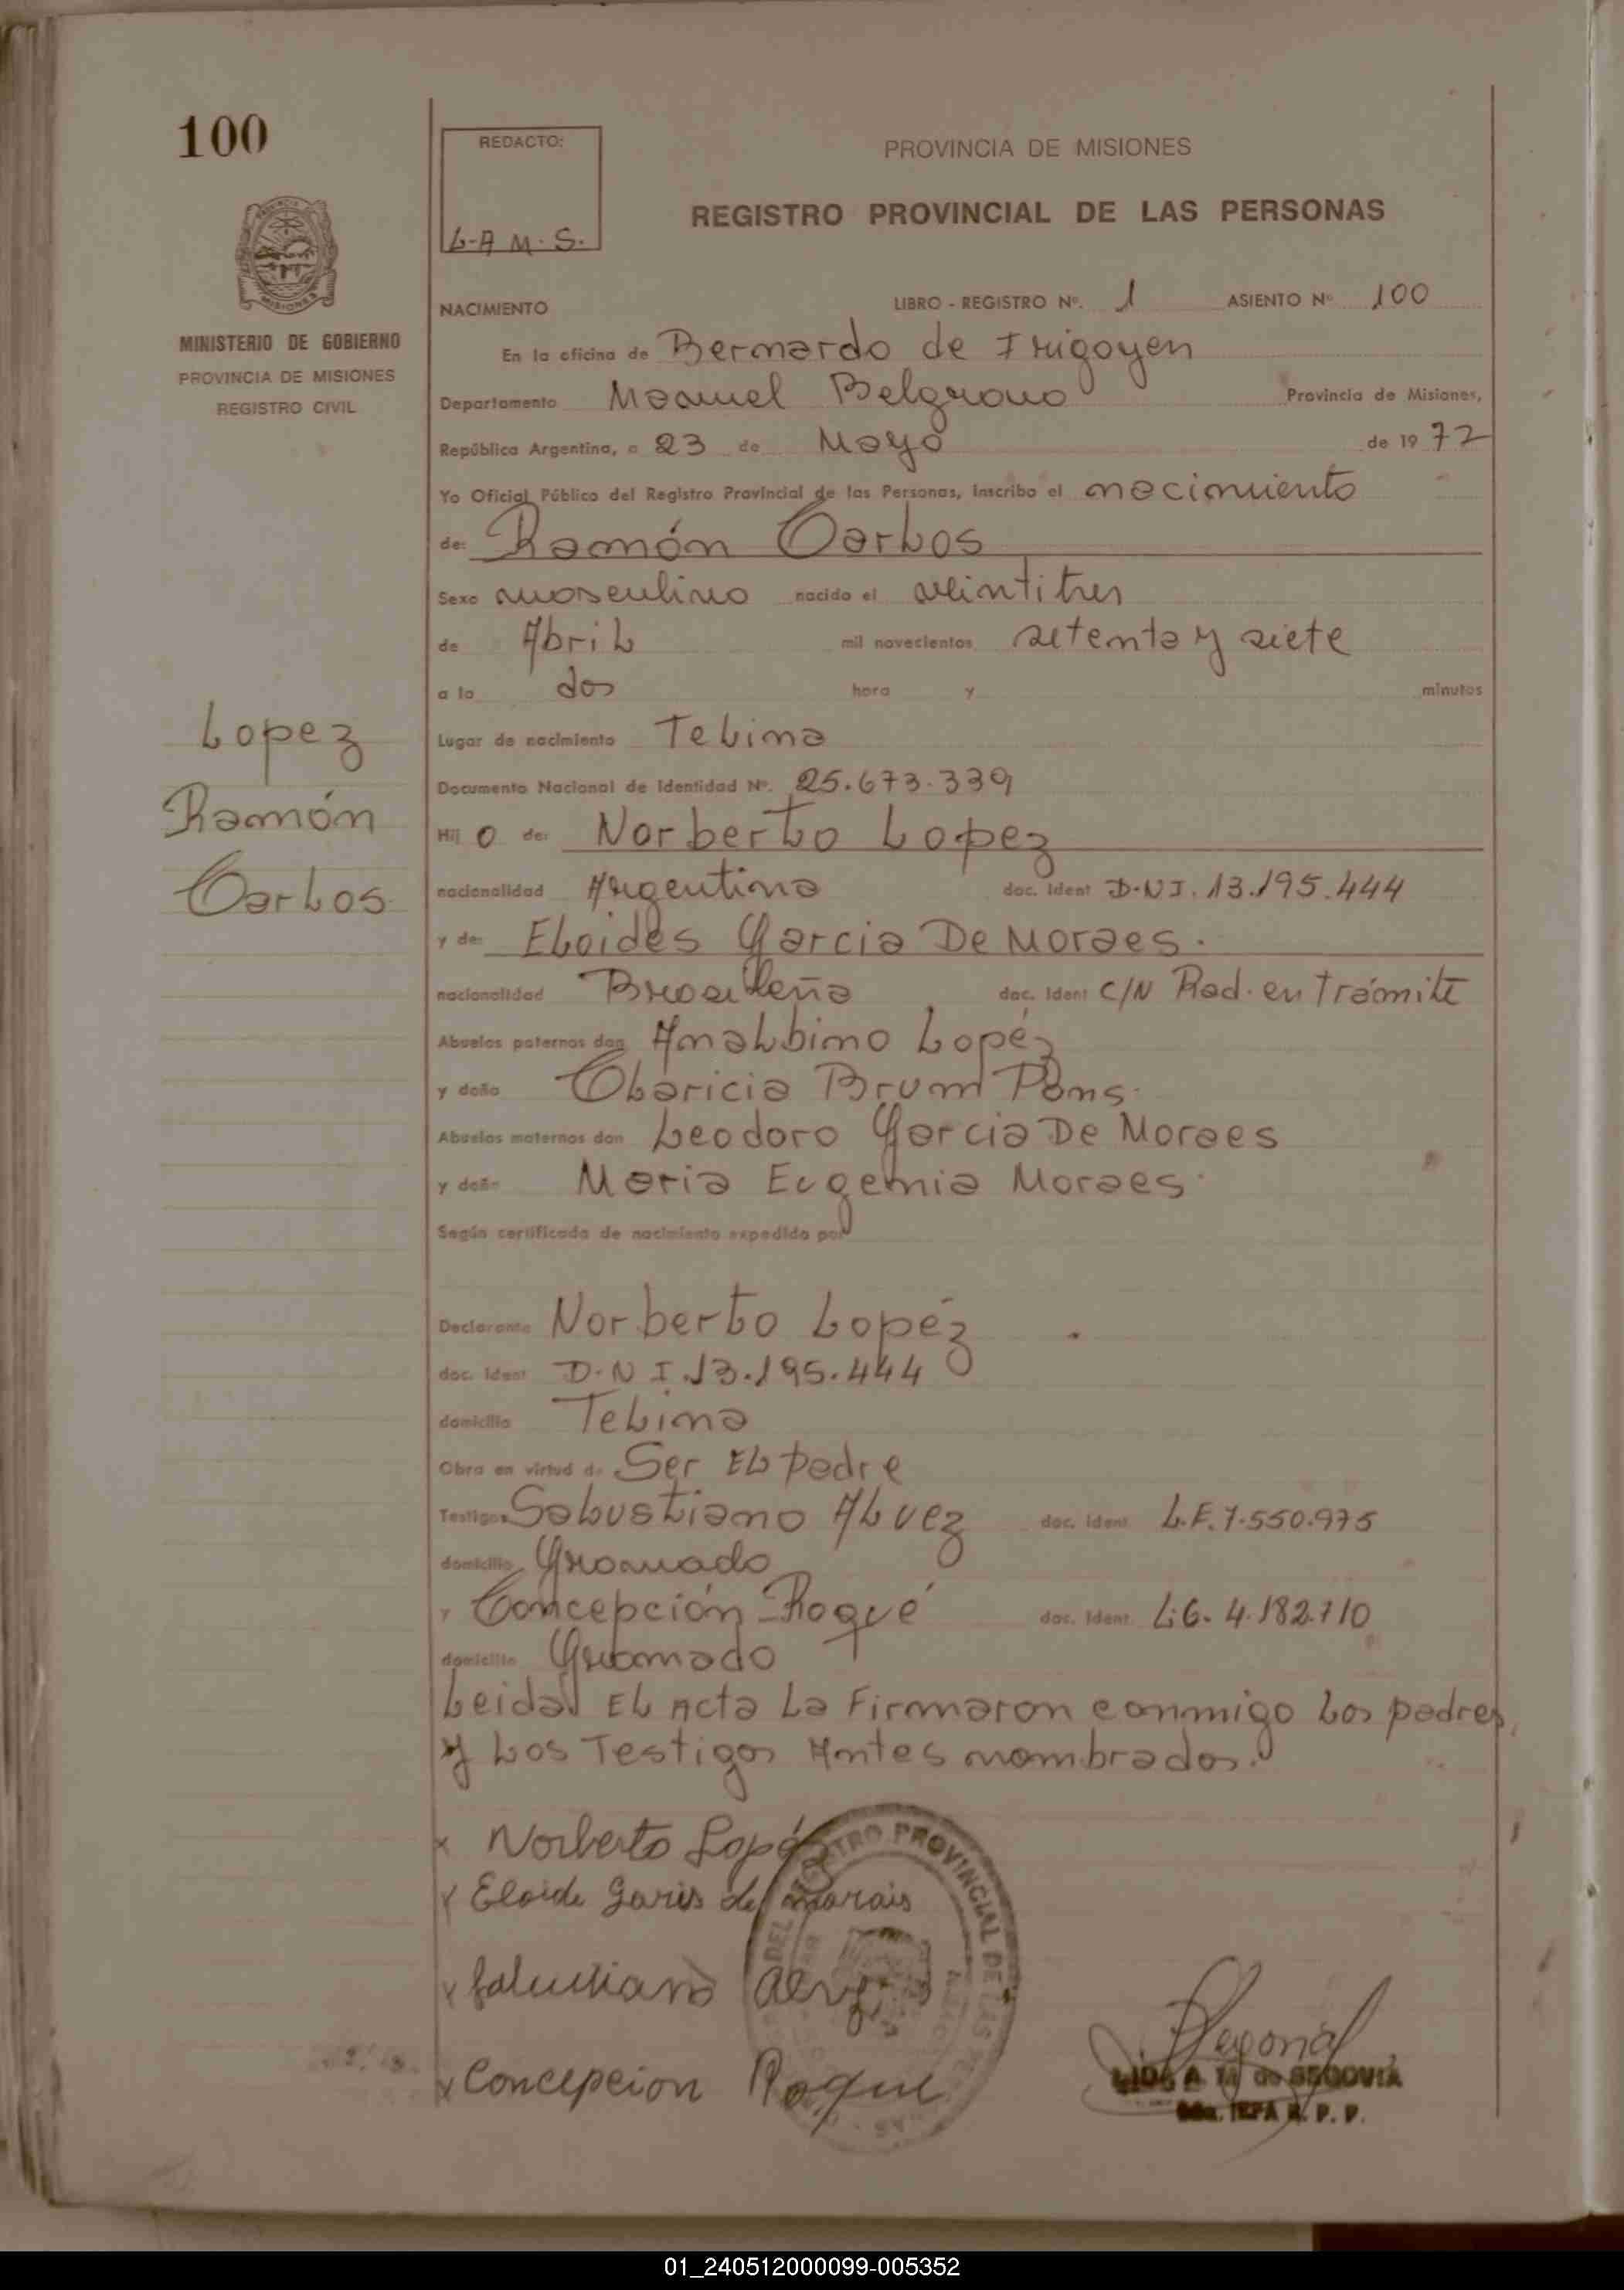 100
REDACTO:
L-A M. S.
PROVINCIA DE MISIONES
REGISTRO PROVINCIAL DE LAS PERSONAS
MISIONES
MINISTERIO DE GOBIERNO
PROVINCIA DE MISIONES
REGISTRO CIVIL
NACIMIENTO LIBRO - REGISTRO Nº. 1 ASIENTO Nº 100
En la oficina de Bernardo de Irigoyen
Departamento Manuel Belgrano Provincia de Misiones,
República Argentina, a 23 de Mayo de 19 77
Yo Oficial Público del Registro Provincial de las Personas, inscribo el nacimiento
de: Ramón Carlos
Sexo masculino nacido el veintitres
de Abril mil novecientos setenta y siete
a la dos hora y minutos
Lugar de nacimiento Telina
Documento Nacional de Identidad Nº. 25.673.339
Lopez
Ramón
Carlos
Hij o de: Norberto Lopez
nacionalidad Argentina doc. Ident D.N.I. 13.195.444
y de: Eloides Garcia De Moraes.
nacionalidad Brasileña doc. Ident C/N Rad. en trámite
Abuelos paternos don Analbino Lopéz
y doña Claricia Brum Pons.
Abuelos maternos don Leodoro Garcia De Moraes
y doña Maria Eugenia Moraes.
Según certificado de nacimiento expedido por
Declarante Norberto Lopéz
doc. Ident D.N I.13.195.444
domicilio Telina
Obra en virtud de Ser El padre
Testigos Salustiano Alvez doc. Ident L.E.7.550.975
domicilio Gramado
y Concepción Roqué doc. Ident. L.C. 4.182.710
domicilio Gramado
Leida El Acta La Firmaron conmigo Los padres,
y Los Testigos Antes nombrados.
x Norberto Lopéz
x Eloide Garis de morais
x Salustiano Alvez
x Concepcion Roque
REGISTRO PROVINCIAL DE LAS
LIDA A. M de SEGOVIA
JEFA R. P. P.
01_240512000099-005352